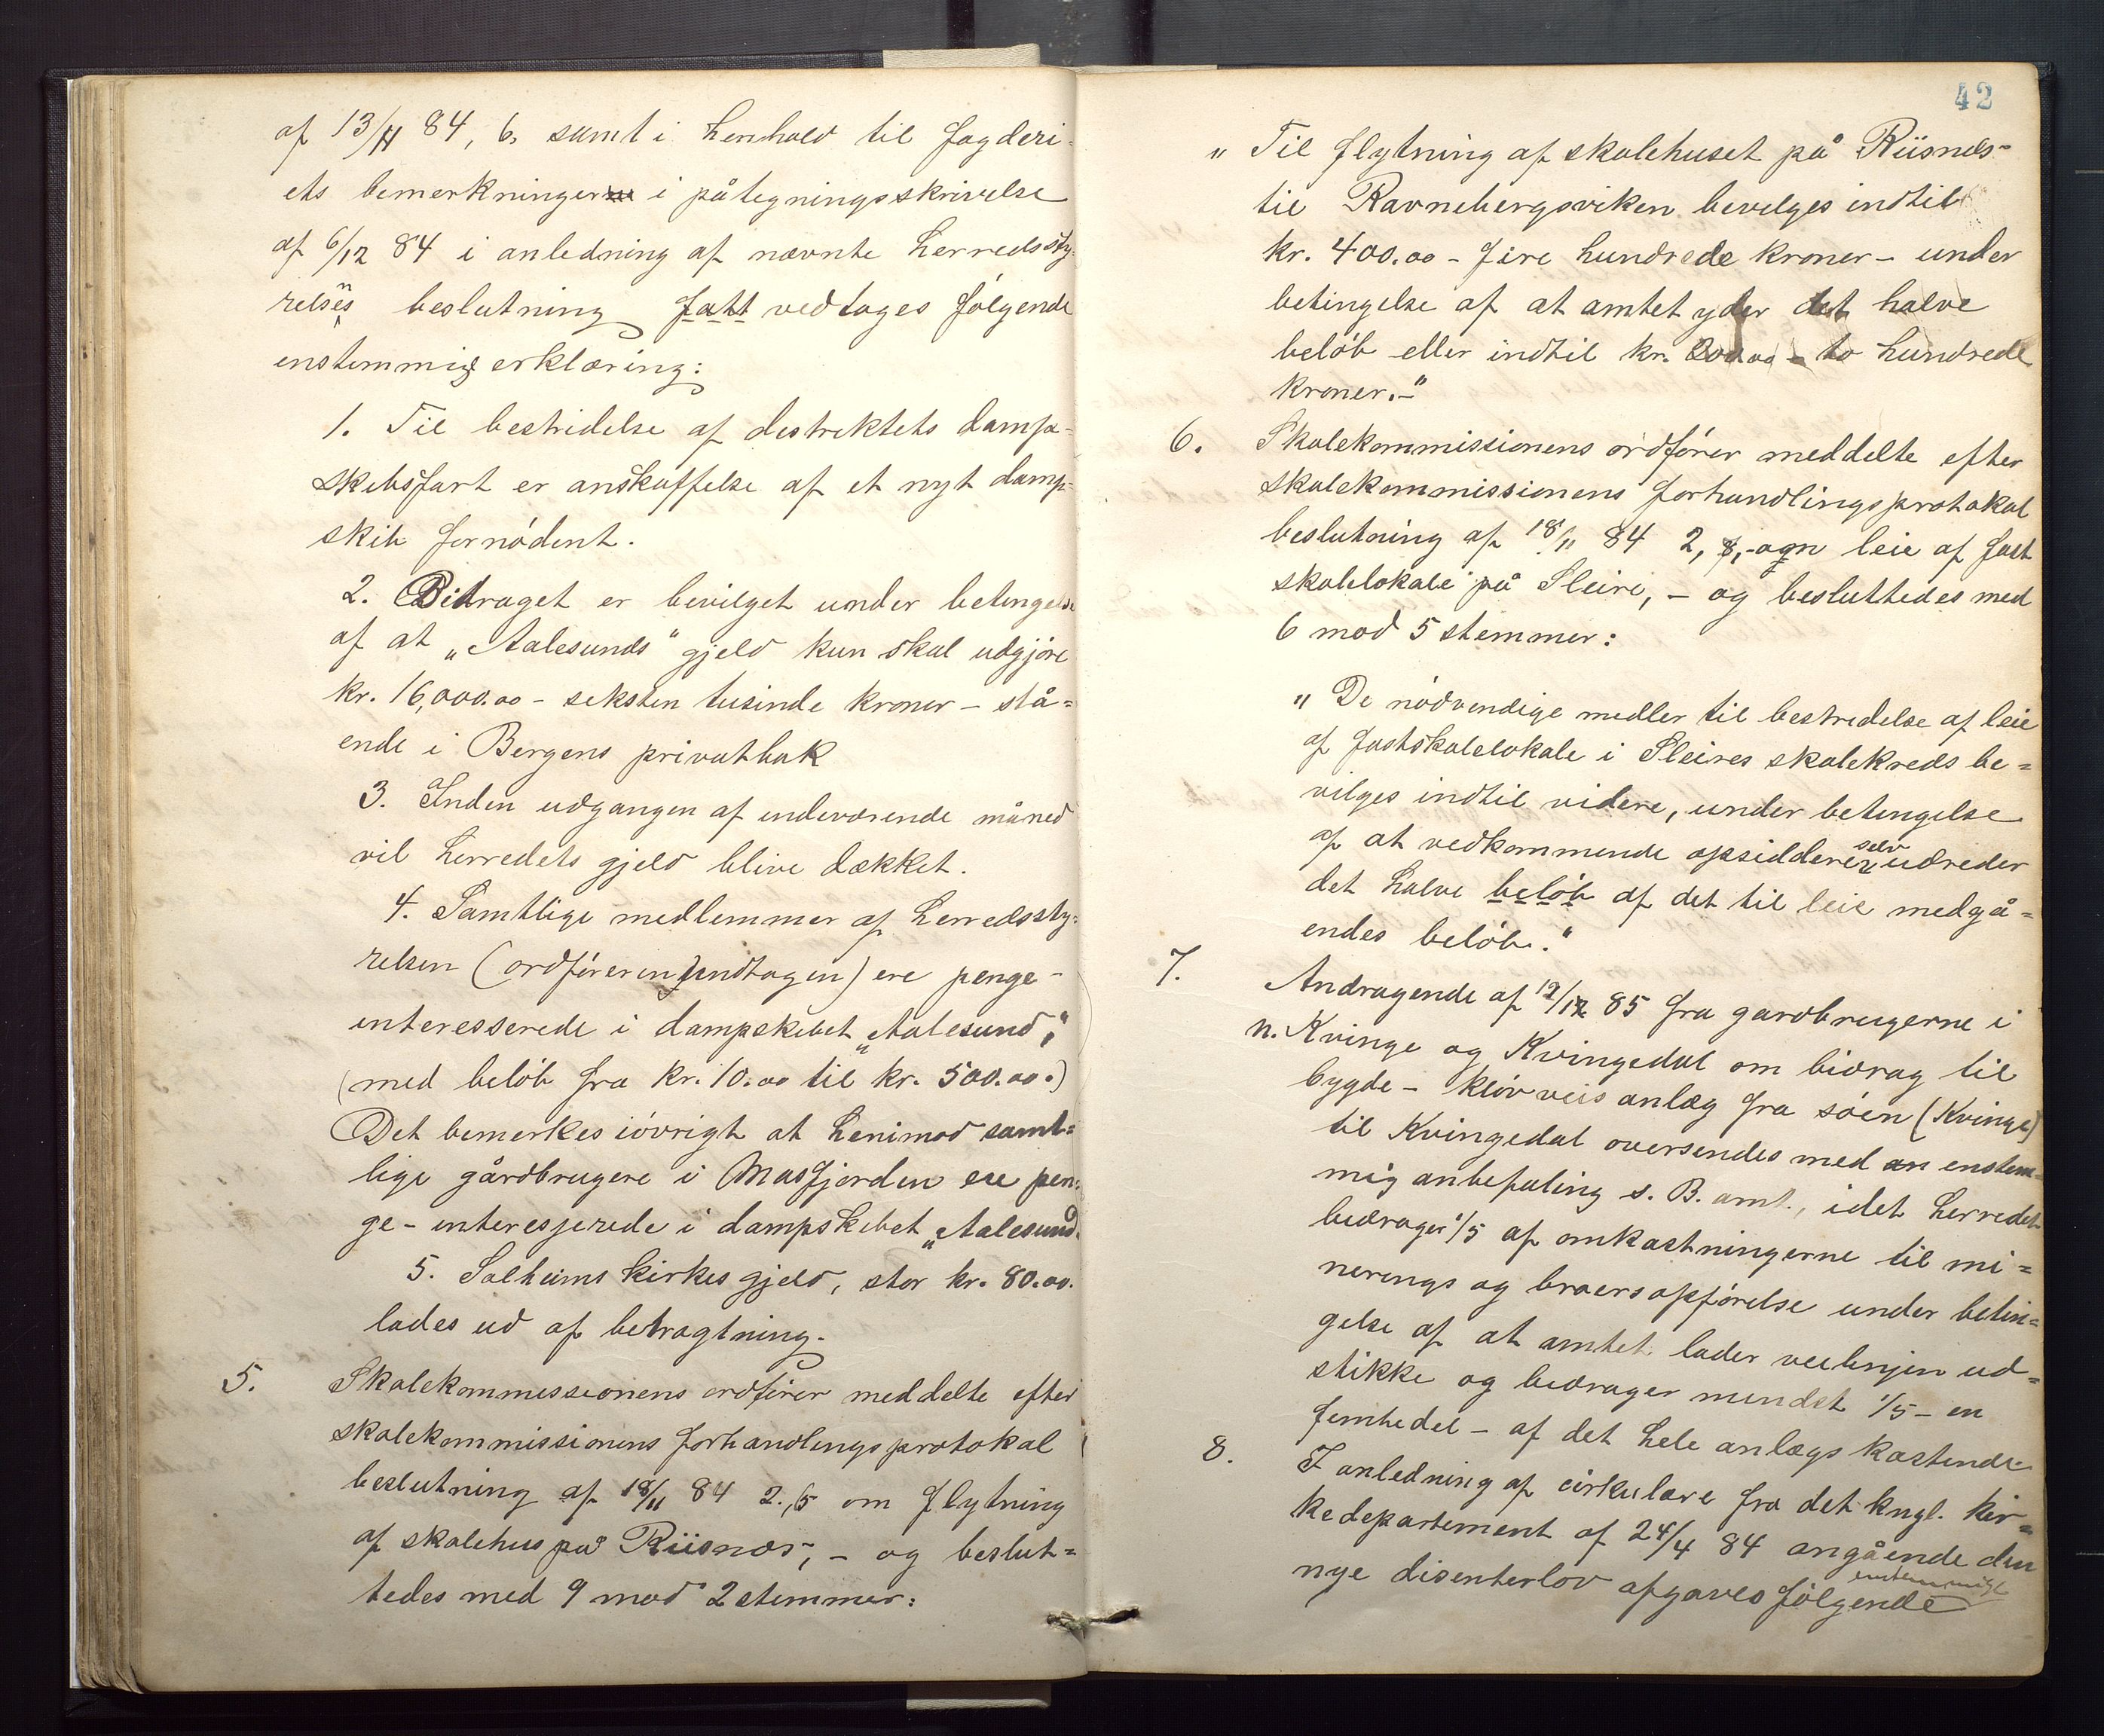 af 13/11 84, 6, samt i henhold til fogderi-
ets bemerkninger i påtegningsskrivelse
af 6/12 84 i anledning af nævnte herredssty-
relses beslutning fatt vedtages følgende
enstemmig erklæring:
1. Til bestridelse af destriktets damp-
skibsfart er anskaffelse af et nyt damp-
skib fornødent.
2. Bidraget er bevilget under betingelse
af at „Aalesunds" gjeld kun skal udgjøre
kr. 16,000.00 - seksten tusinde kroner - stå=
ende i Bergens privatbak
3. Inden udgangen af indeværende måned
vil herredets gjeld blive dækket.
4. Samtlige medlemmer af herredssty=
relsen (ordføreren undtagen) ere penge-
interesserede i dampskibet „Aalesund",
(med beløb fra kr. 10.00 til kr. 500.00.)
Det bemerkes iøvrigt at henimod samt=
lige gårdbrugere i Masfjorden ere pen=
ge-interesserede i dampskibet „Aalesund.
5. Solheims kirkes gjeld, stor kr. 80.00.
lades ud af betragtning.
5. Skolekommissionens ordfører meddelte efter
skolekommissionens forhandlingsprotokol
beslutning af 18/11 84 2., 5 om flytning
af skolehus på Riisnæs, - og beslut=
tedes med 9 mod 2 stemmer:
42
„ Til flytning af skolehuset på Riisnæs-
til Ravnebergsviken bevilges indtil
kr. 400.00 - fire hundrede kroner - under
betingelse af at amtet yder det halve
beløb eller indtil kr. 200.00 - to hundrede
kroner.-"
6. Skolekommissionens ordfører meddelte efter
skolekommissionens forhandlingsprotokol
beslutning af 18/11 84 2, leie af fast
skolelokale på Sleire, - og besluttedes med
6 mod 5 stemmer:
„ De nødvendige midler til bestridelse af leie
af fastskolelokale i Sleires skolekreds be=
vilges indtil videre, under betingelse
af at vedkommende opsiddere selv udreder
det halve beløb af det til leie medgå=
endes beløb."
7. Andragende af 12/12 85 fra gardbrugerne i
n. Kvinge og Kvingedal om bidrag til
bygde - kløvveis anlæg fra søen (Kvinge)
til Kvingedal oversendes med en enstem=
mig anbefaling s. B. amt., idet herredet
bidrager 1/5 af omkostningerne til mi=
nerings og broers opførelse under betin=
gelse af at amtet lader veilinjen ud=
stikke og bidrager mindst 1/5 - en
femtedel - af det hele anlægs kostende.
8. I anledning af cirkulære fra det kngl. kir=
kedepartement af 24/4 84 angående den
nye disenterlov afgaves følgende enstemmige